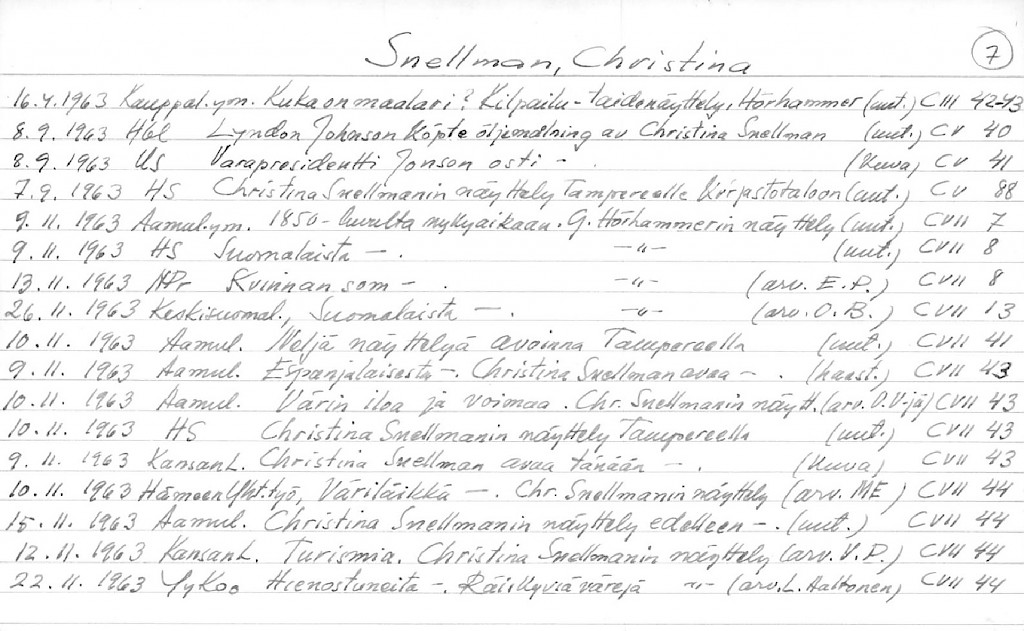 Snellman, Christina 7
16.4.1963 Kauppal.ym. Kuka on maalari? Kilpailu-taidenäyttely, Hörhammer (uut.) CIII 42-43
8.9.1963 Hbl Lyndon Johnson köpte oljemålning av Christina Snellman (uut.) CV 40
8.9.1963 US Varapresidentti Jonson osti - . (kuva) CV 41
7.9.1963 HS Christina Snellmanin näyttely Tampereelle Kirjastotaloon (uut.) CV 88
9.11.1963 Aamul.ym. 1850-luvulta nykyaikaan. G. Hörhammerin näyttely (uut.) CVII 7
9.11.1963 HS Suomalaista - . -"- (uut.) CVII 8
13.11.1963 NPr Kvinnan som - . -"- (arv. E.P.) CVII 8
26.11.1963 Keskisuomal., Suomalaista - . -"- (arv. O.B.) CVII 13
10.11.1963 Aamul. Neljä näyttelyä avoinna Tampereella (uut.) CVII 41
9.11.1963 Aamul. Espanjalaisesta -. Christina Snellman avaa - . (haast.) CVII 43
10.11.1963 Aamul. Värin iloa ja voimaa. Chr. Snellmanin näytt. (arv. O.V-jä) CVII 43
10.11.1963 HS Christina Snellmanin näyttely Tampereella (uut.) CVII 43
9.11.1963 KansanL. Christina Snellman avaa tänään - . (kuva) CVII 43
10.11.1963 Hämeen Yht.työ, Väriläikkä - . Chr. Snellmanin näyttely (arv. ME) CVII 44
15.11.1963 Aamul. Christina Snellmanin näyttely edelleen - . (uut.) CVII 44
12.11.1963 KansanL. Turismia. Christina Snellmanin näyttely (arv. V.P.) CVII 44
22.11.1963 Hienostuneita -. Räiskyviä värejä -"- (arv. L. Aaltonen) CVII 44